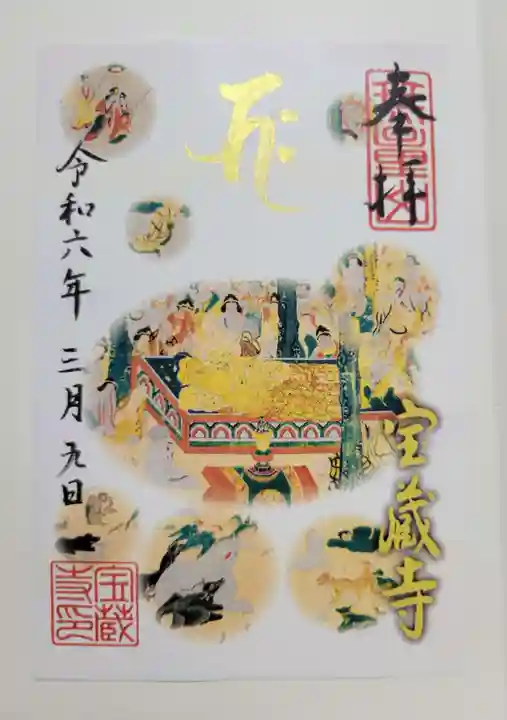 奉拝
宝蔵寺
令和六年 三月 九日
宝蔵寺印